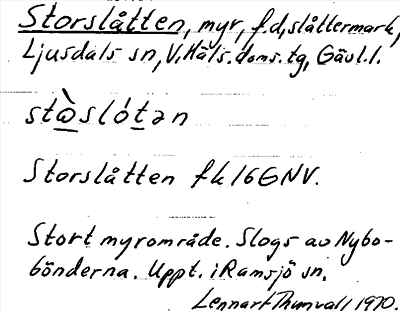 Storslåtten, myr, f.d. slåttermark,
Ljusdals sn, V. Häls. doms. tg, Gävl. l.
stɷ̀slótən
Storslåtten fk 16GNV.
Stort myrområde. Slogs av Nybo-
bönderna. Uppt. i Ramsjö sn.
Lennart Thunvall 1970.